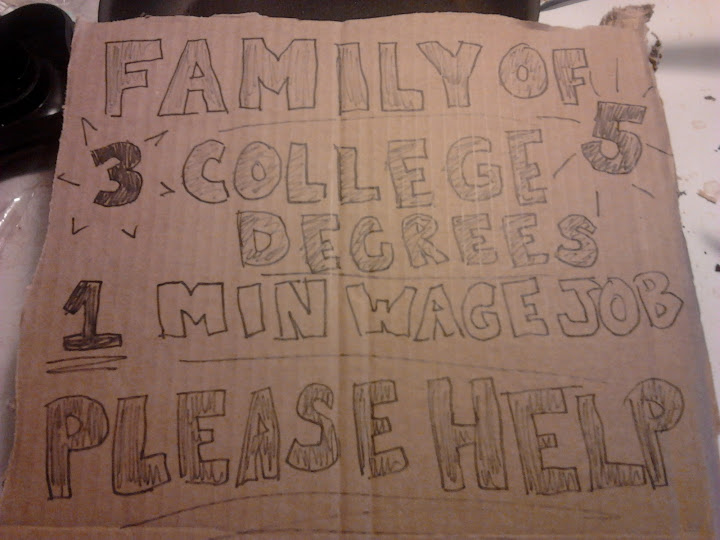 FAMILY OF 5
3 COLLEGE
DEGREES
1 MIN WAGE JOB
PLEASE HELP